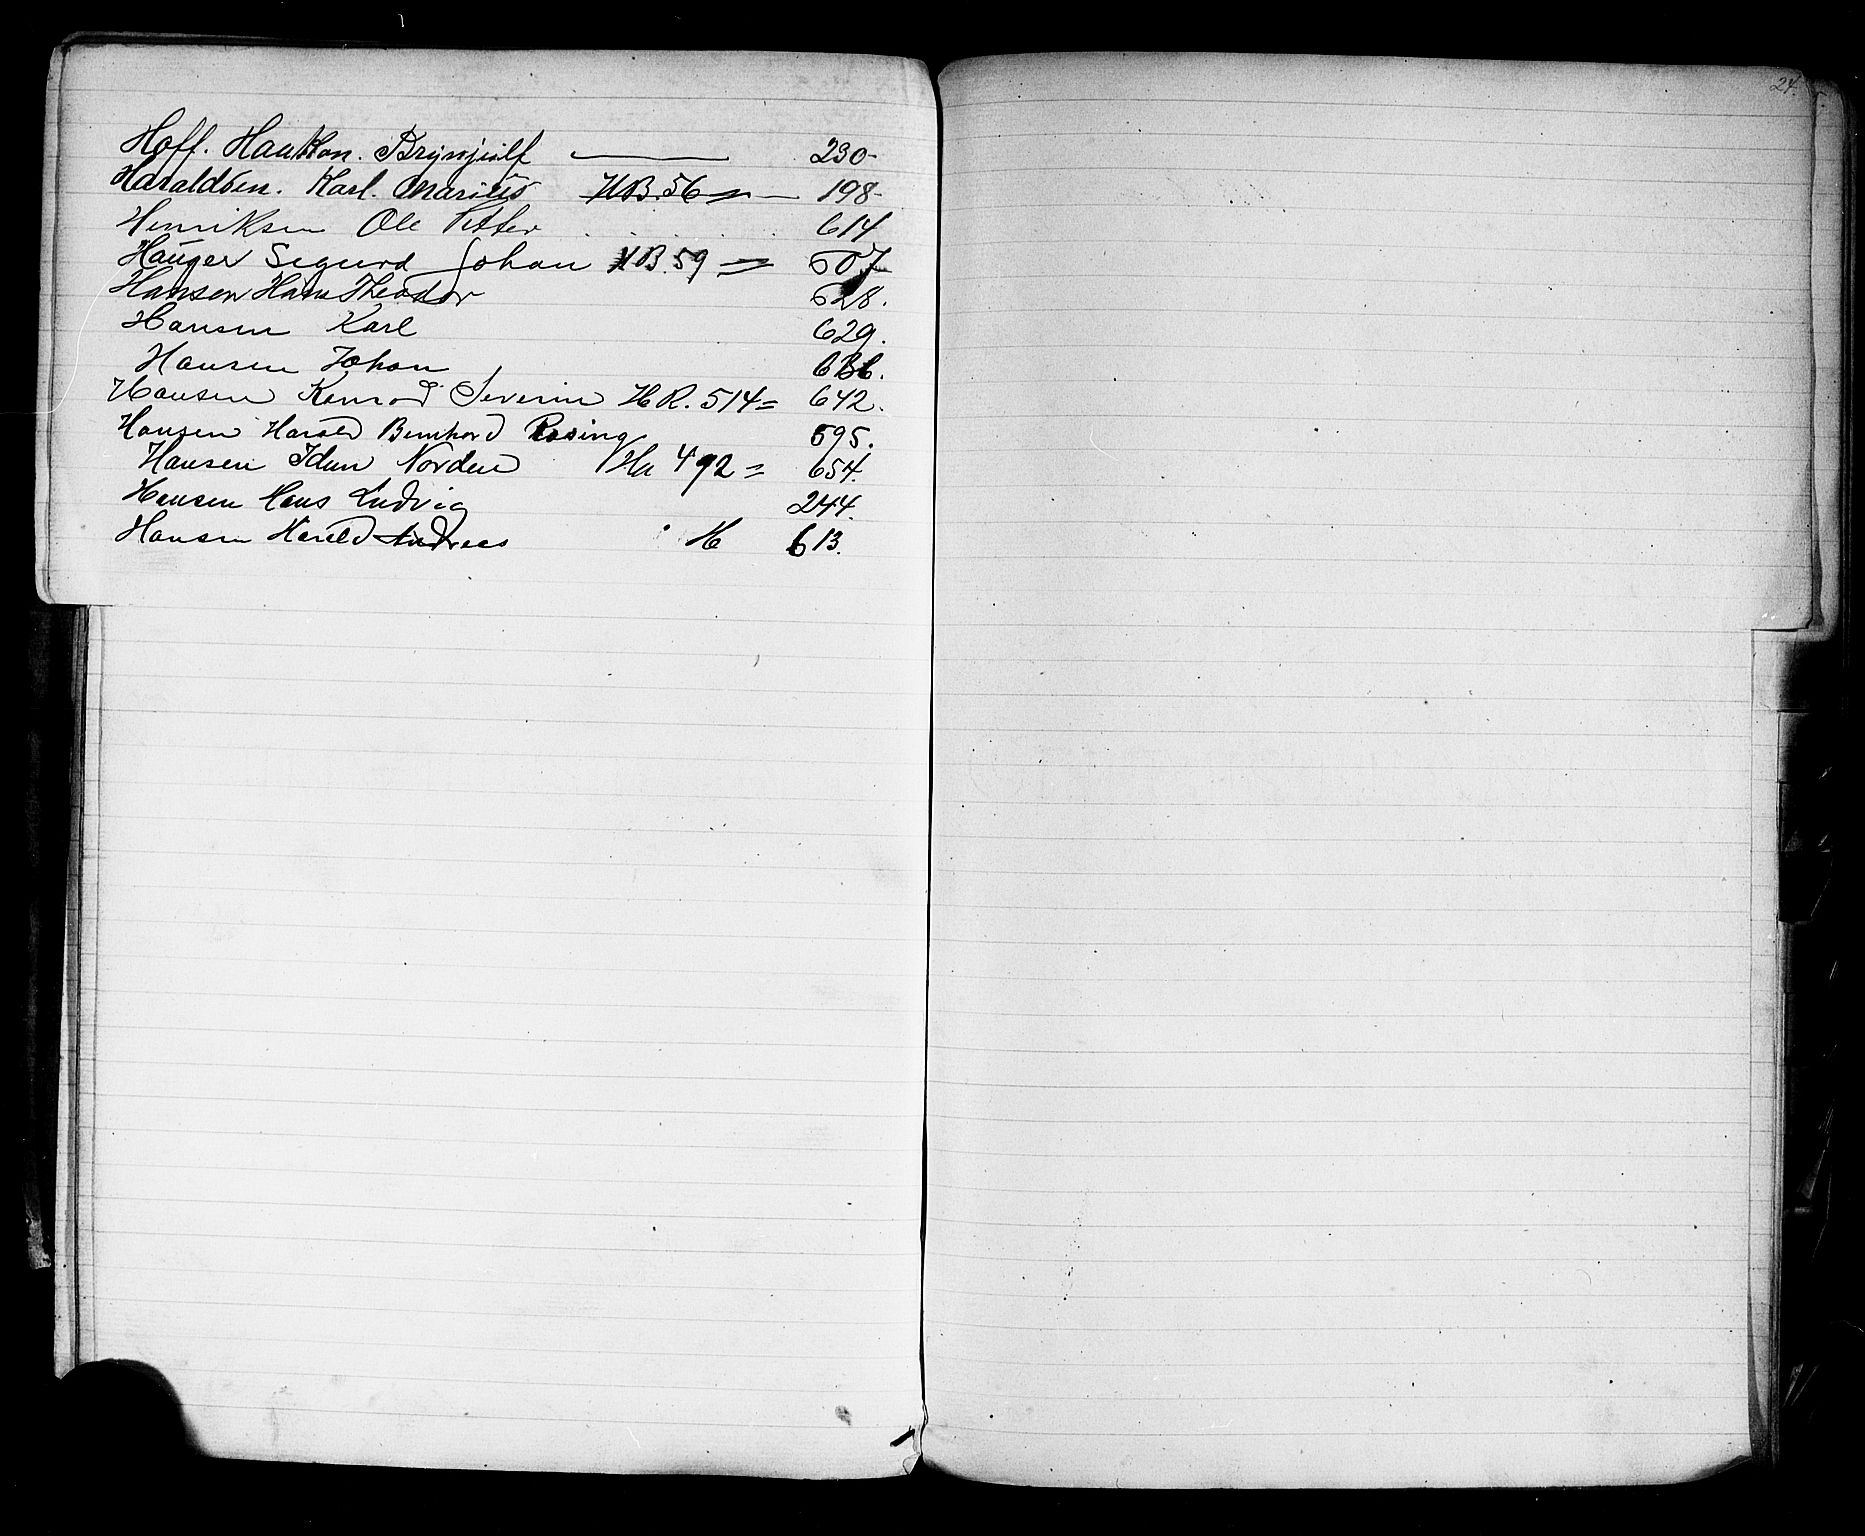 24.
Hoff. Haukon. Brynjulf — 230-
Haraldsen. Karl. Marius HB. 56 = — 198-
Henriksen Ole Petter . . . . . 614
Hauger Sigurd Johan HB. 59 = 507
Hansen Hans Theodor 628.
Hansen Karl 629.
Hansen Johan
Hansen Konrad Severin HR. 514 = 642.
Hansen Harald Bernhard Rosing 595.
Hansen Idun Norden HR 492 = 654.
Hansen Hans Ludvig 244.
Hansen Harald Andreas H 613.